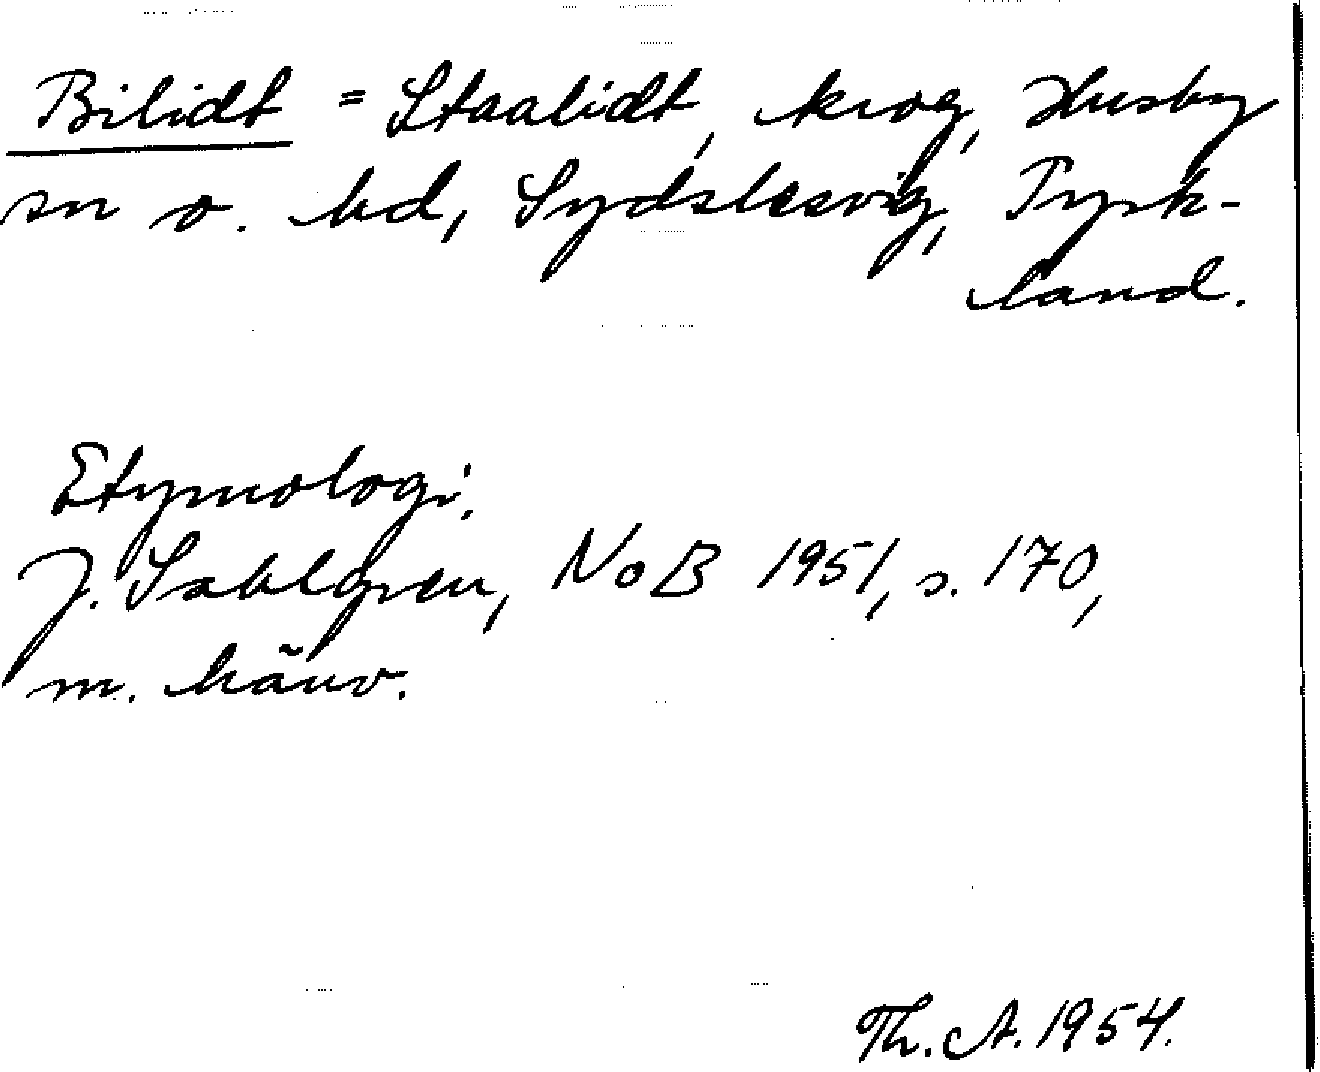 Bilidt = Staalidt, krog, Husby
sn o. hd, Sydslesvig, Tysk-
land.
Etymologi.
J. Sahlgren, NoB 1951, s. 170,
m. hänv.
Th. A. 1954.